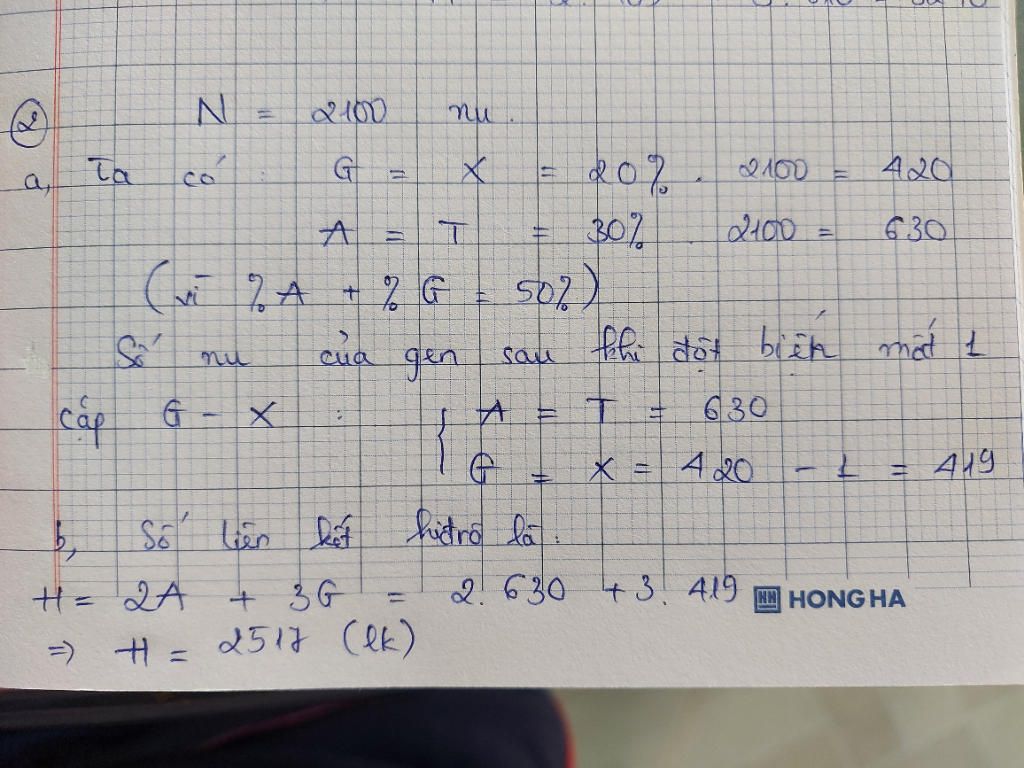 ② N = 2100 nu.
a, Ta có: G = X = 20% . 2100 = 420
A = T = 30% . 2100 = 630
(vì %A + %G = 50%)
Số nu của gen sau khi đột biến mất 1
cặp G - X : { A = T = 630
G = X = 420 - 1 = 419
b, Số liên kết hiđrô là:
H = 2A + 3G = 2. 630 + 3. 419
HH HONG HA
=> H = 2517 (lk)